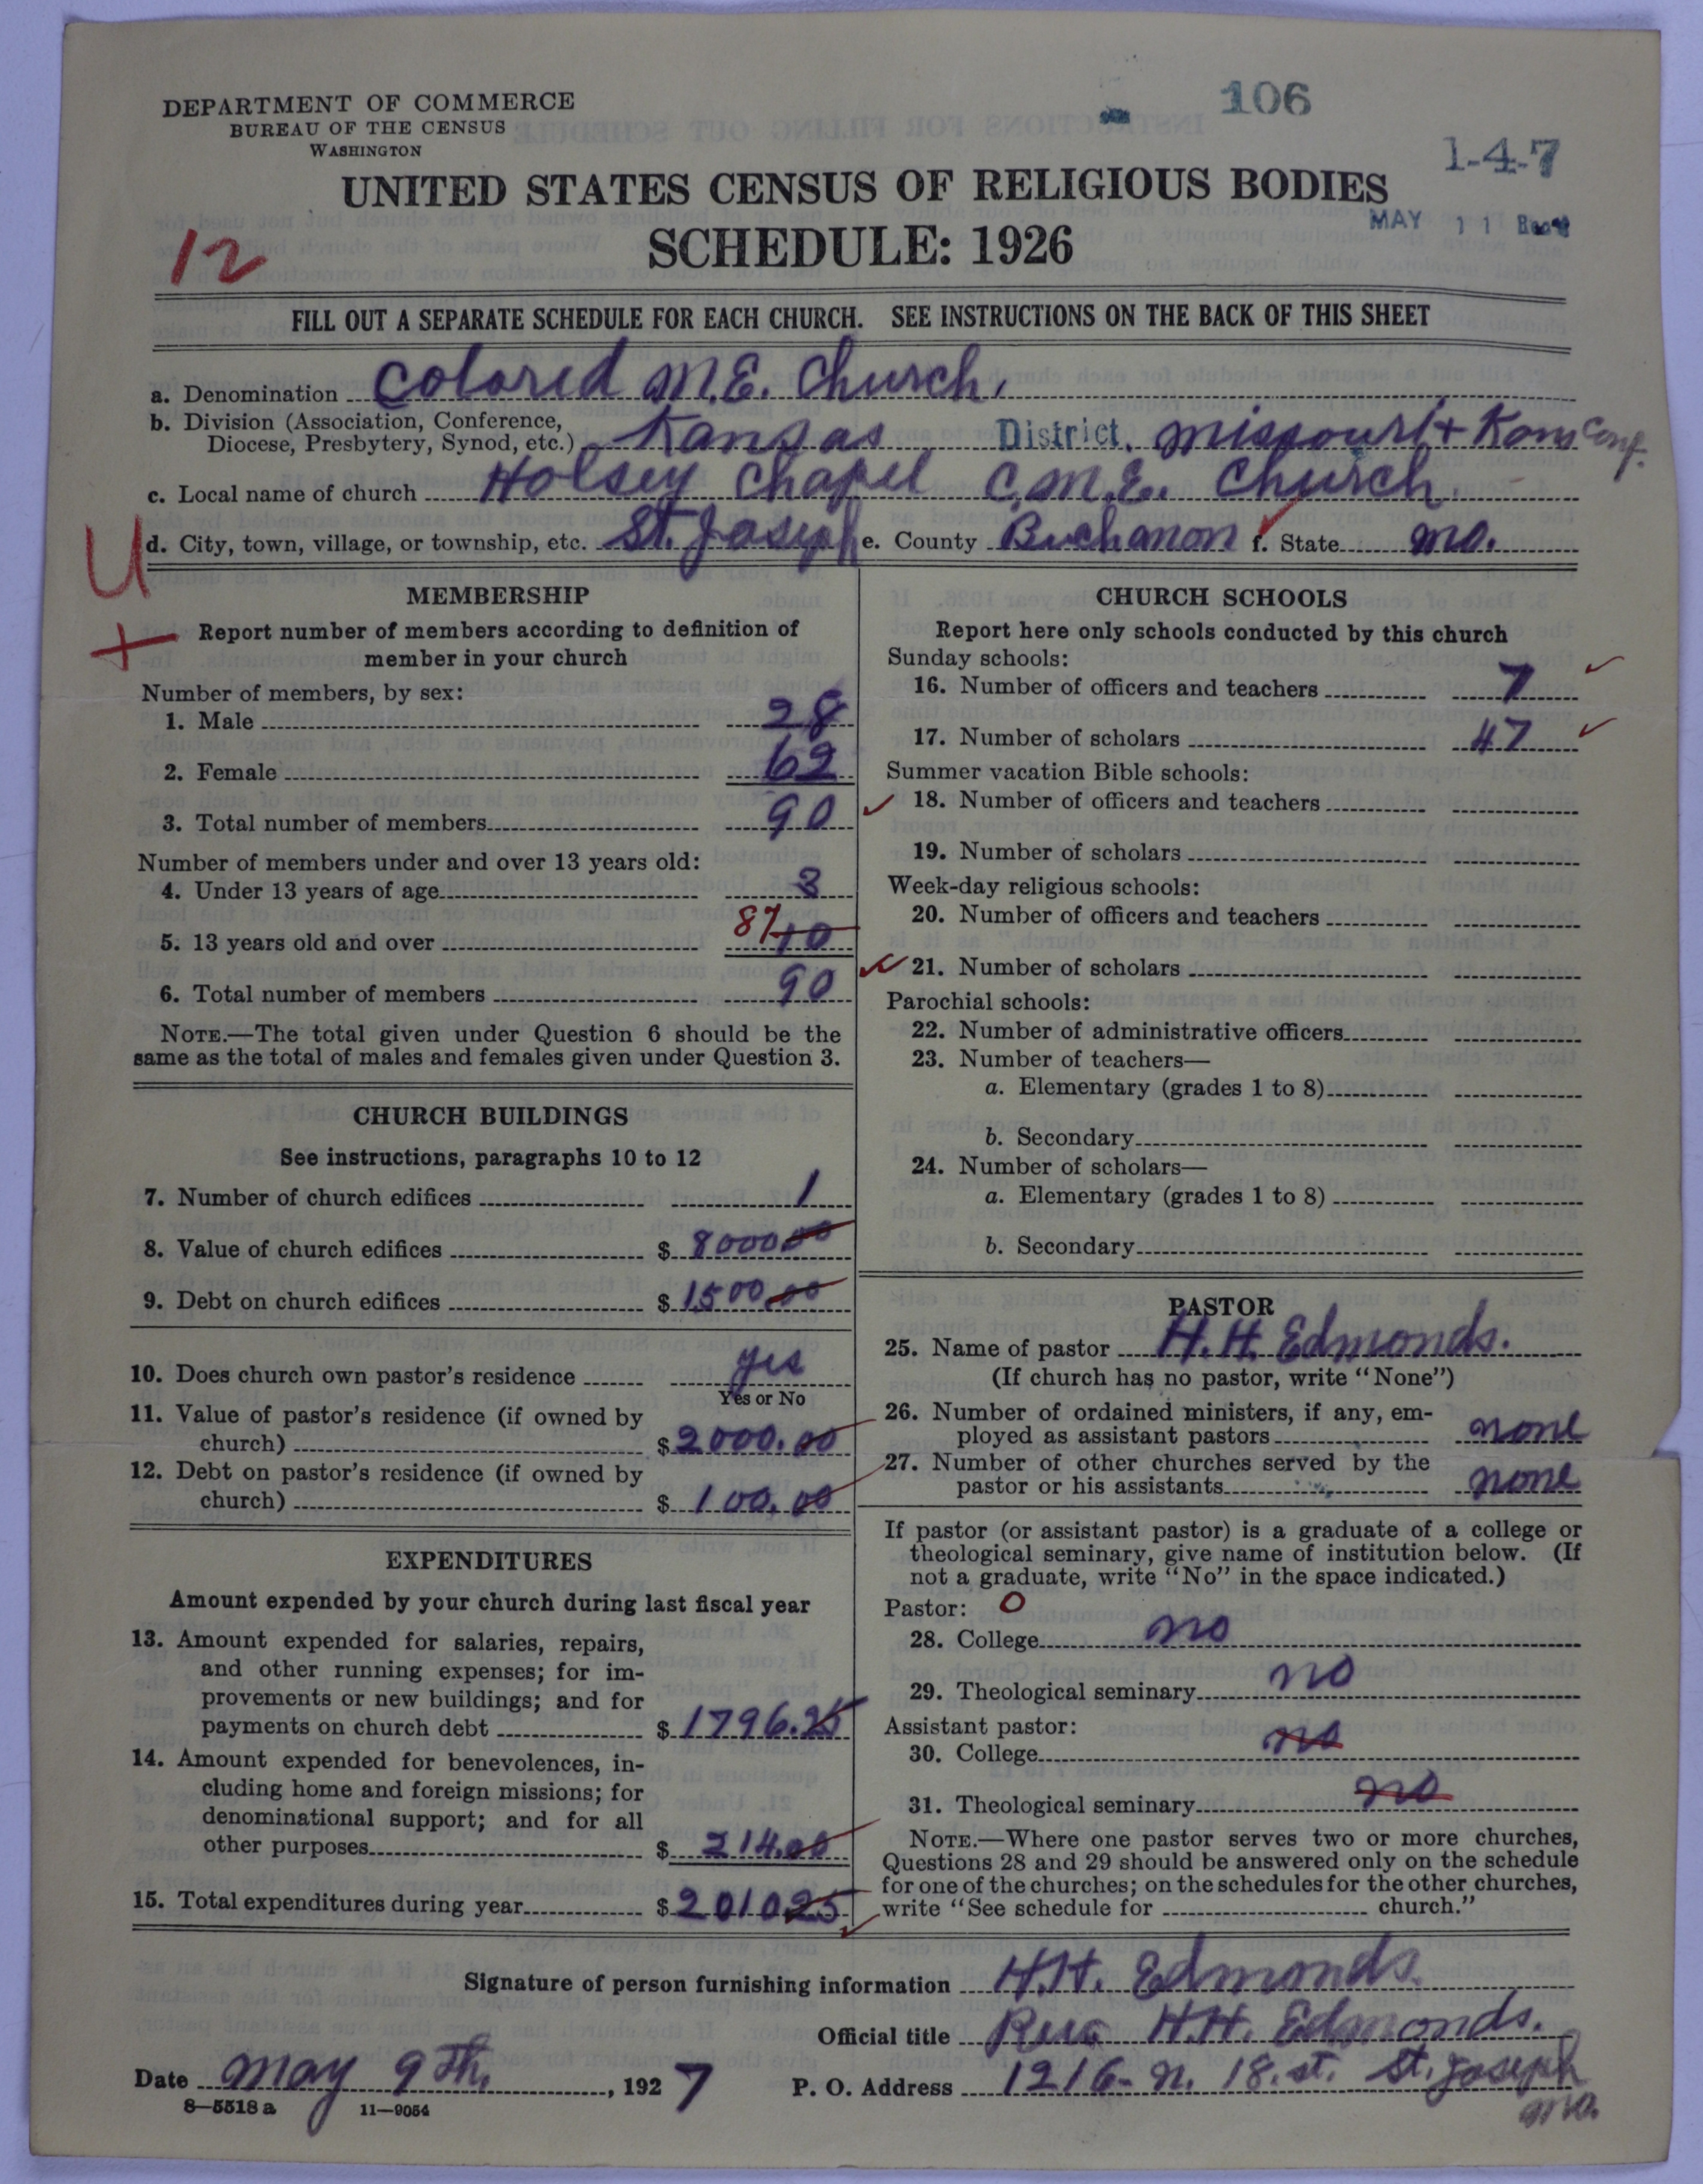 106
DEPARTMENT OF COMMERCE
BUREAU OF THE CENSUS
WASHINGTON
1-4-7
UNITED STATES CENSUS OF RELIGIOUS BODIES
MAY 11
SCHEDULE: 1926
12
FILL OUT A SEPARATE SCHEDULE FOR EACH CHURCH. SEE INSTRUCTIONS ON THE BACK OF THIS SHEET
a. Denomination Colored M.E. Church.
b. Division (Association, Conference,
Diocese, Presbytery, Synod, etc.) Kansas District. Missouri + Kans Conf.
c. Local name of church Holsey Chapel C.M.E. Church.
d. City, town, village, or township, etc. St. Joseph e. County Buchanon f. State Mo.
U
+
MEMBERSHIP
Report number of members according to definition of
member in your church
Number of members, by sex:
1. Male 28
2. Female 62
3. Total number of members 90
Number of members under and over 13 years old:
4. Under 13 years of age 3
5. 13 years old and over 87 10
6. Total number of members 90
NOTE.—The total given under Question 6 should be the
same as the total of males and females given under Question 3.
CHURCH BUILDINGS
See instructions, paragraphs 10 to 12
7. Number of church edifices 1
8. Value of church edifices $ 8000.00
9. Debt on church edifices $ 1500.00
10. Does church own pastor's residence yes
Yes or No
11. Value of pastor's residence (if owned by
church) $ 2000.00
12. Debt on pastor's residence (if owned by
church) $ 100.00
EXPENDITURES
Amount expended by your church during last fiscal year
13. Amount expended for salaries, repairs,
and other running expenses; for im-
provements or new buildings; and for
payments on church debt $ 1796.25
14. Amount expended for benevolences, in-
cluding home and foreign missions; for
denominational support; and for all
other purposes $ 214.00
15. Total expenditures during year $ 2010.25
CHURCH SCHOOLS
Report here only schools conducted by this church
Sunday schools:
16. Number of officers and teachers 7
17. Number of scholars 47
Summer vacation Bible schools:
18. Number of officers and teachers
19. Number of scholars
Week-day religious schools:
20. Number of officers and teachers
21. Number of scholars
Parochial schools:
22. Number of administrative officers
23. Number of teachers—
a. Elementary (grades 1 to 8)
b. Secondary
24. Number of scholars—
a. Elementary (grades 1 to 8)
b. Secondary
PASTOR
25. Name of pastor H. H. Edmonds.
(If church has no pastor, write "None")
26. Number of ordained ministers, if any, em-
ployed as assistant pastors none
27. Number of other churches served by the
pastor or his assistants none
If pastor (or assistant pastor) is a graduate of a college or
theological seminary, give name of institution below. (If
not a graduate, write "No" in the space indicated.)
Pastor: O
28. College no
29. Theological seminary no
Assistant pastor:
30. College no
31. Theological seminary no
NOTE.—Where one pastor serves two or more churches,
Questions 28 and 29 should be answered only on the schedule
for one of the churches; on the schedules for the other churches,
write "See schedule for church."
Signature of person furnishing information H.H. Edmonds.
Official title Rev. H.H. Edmonds.
Date May 9th, 1927
P. O. Address 1216-N. 18. st. St. Joseph
Mo.
8—5518 a 11—9054